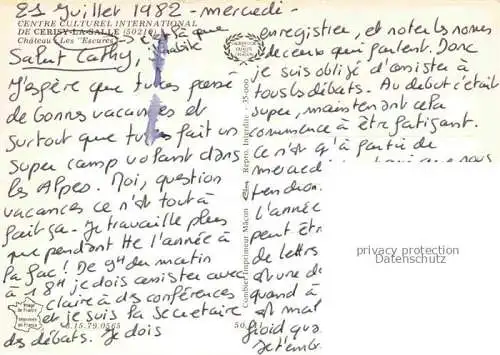 21 Juillet 1982 - mercredi -
CENTRE CULTUREL INTERNATIONAL
DE CERISY-LA-SALLE (50210)
Château Les "Escures" c'est là que
j'habite
Salut Cathy,
J'espère que tu as passé
de bonnes vacances et
surtout que tu as fait un
super camp volant dans
les Alpes. Moi, question
vacances ce n'est tout à
fait ça. Je travaille plus
que pendant tte l'année à
la fac! De 9H du matin
à 18H je dois assister avec
claire à des conférences
et je suis la secrétaire
des débats. Je dois
Image de France
Imprimé en France
6.15.79.0565
Combier Imprimeur Mâcon
Repro. Interdite - 35-000
50
enregistrer, et noter les noms
de ceux qui parlent. Donc
je suis obligé d'assister à
tous les débats. Au début c'était
super, maintenant cela
commence à être fatigant.
Ce n'est qu'à partir de
mercred
tendron
l'année
peut êtr
de lettrs
est une d
quand à
est mal
froid qua
Je t'emb
privacy protection
DATENSCHUTZ